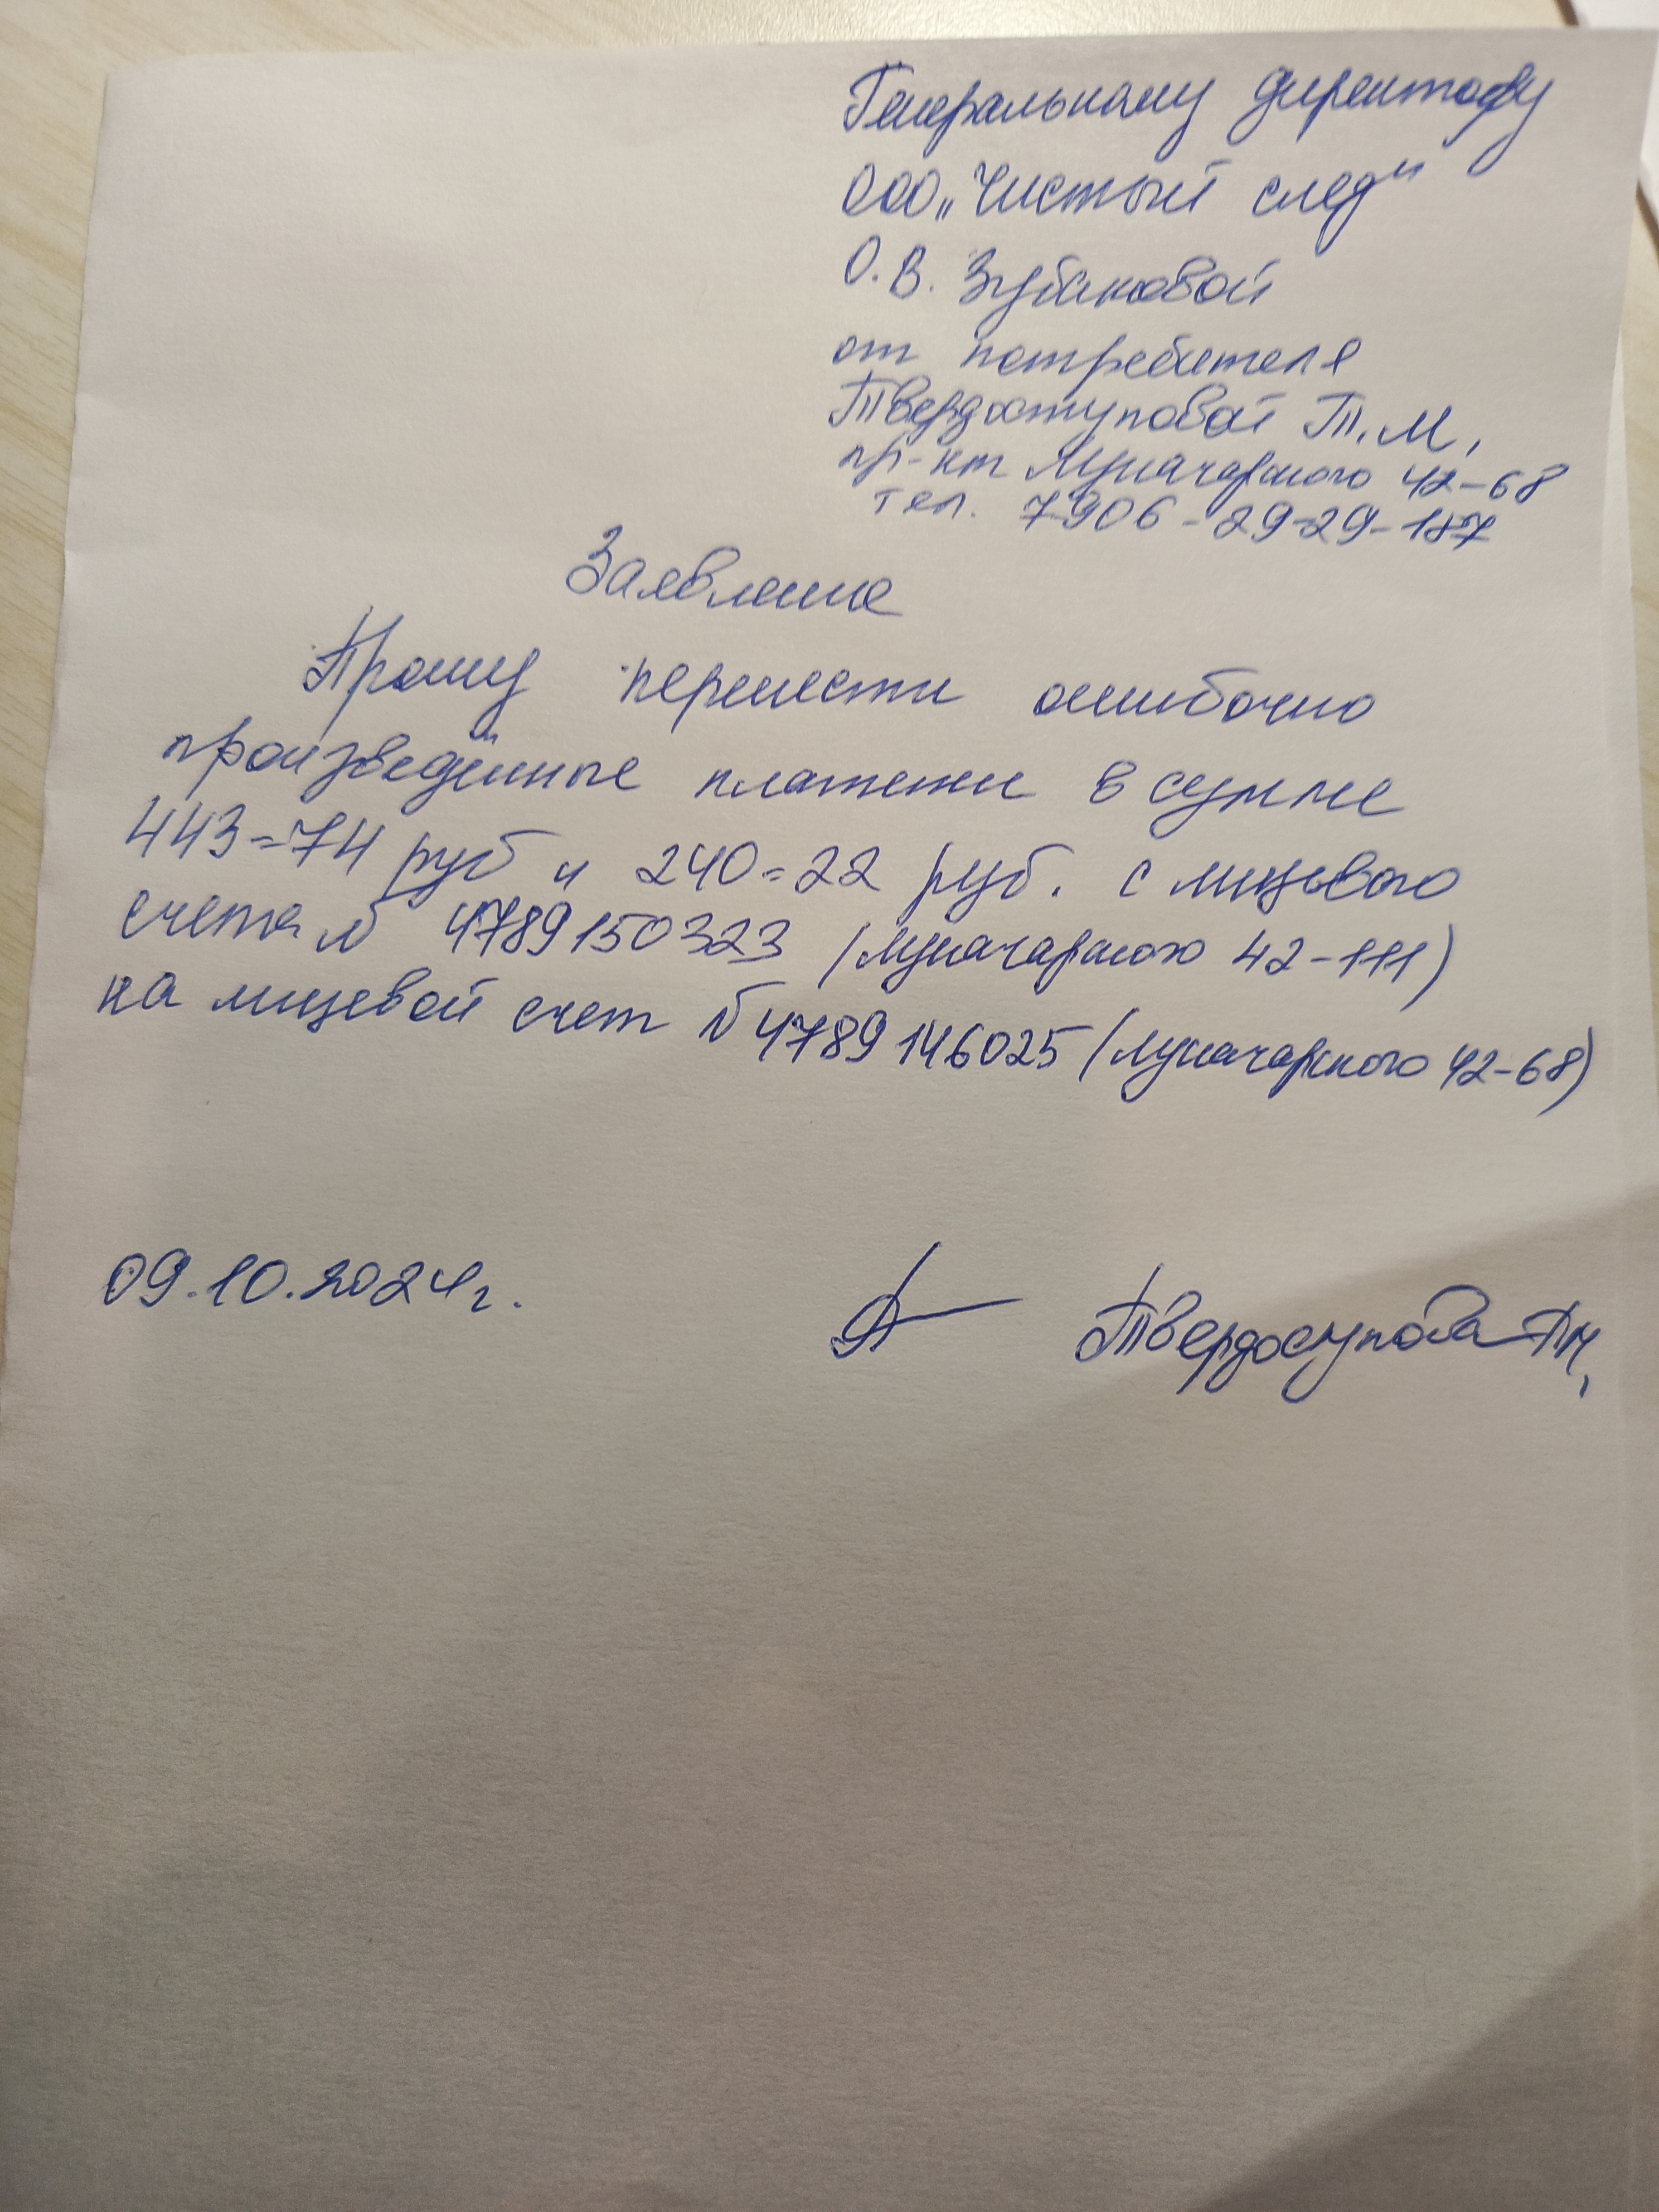 Генеральному директору
ООО „Чистый след"
О.В. Зубаковой
от потребителя
Твердоступовой Т.М,
пр-кт Луначарского 42-68
тел. 7906-29-29-187
Заявление
Прошу перенести ошибочно
произведённые платежи в сумме
443=74 руб и 240=22 руб. с лицевого
счета № 4789150323 (Луначарского 42-111)
на лицевой счет № 4789146025 (Луначарского 42-68)
09.10.2024г. Твердоступова ТМ,